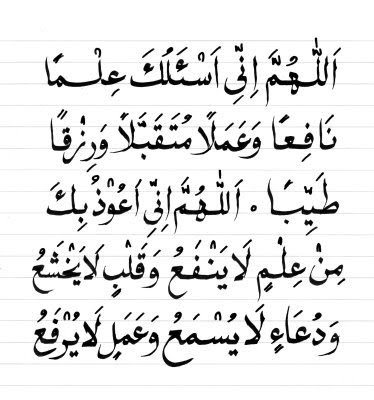 اَللّٰهُمَّ اِنِّى اَسْئَلُكَ عِلْمًا
نَافِعًا وَعَمَلًا مُتَقَبَّلًا وَرِزْقًا
طَيِّبًا . اَللّٰهُمَّ اِنِّى اَعُوْذُ بِكَ
مِنْ عِلْمٍ لَا يَنْفَعُ وَقَلْبٍ لَا يَخْشَعُ
وَدُعَاءٍ لَا يُسْمَعُ وَعَمَلٍ لَا يُرْفَعُ